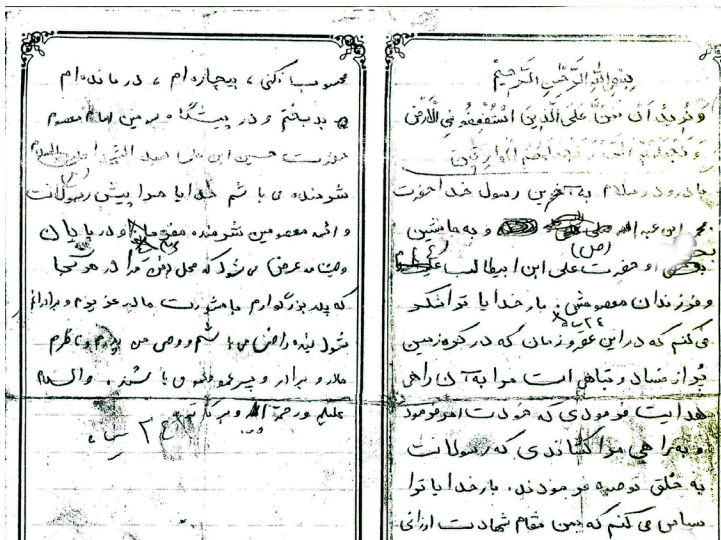 بسم الله الرحمن الرحیم
و نرید ان نمن علی الذین استضعفوا فی الارض
و نجعلهم ائمة و نجعلهم الوارثین
با درود و سلام به آخرین رسول خدا حضرت
محمد ابن عبدالله (ص) و به جانشین
او حضرت علی ابن ابیطالب
و فرزندان معصومش. بار خدایا تو را شکر
می‌کنم که در این عصر و زمان که در کره زمین
پر از فساد و تباهی است مرا به آن راهی
هدایت فرمودی که خودت امر فرمود
و به راهی مرا کشاندی که رسولانت
به خلق توصیه فرمودند. بار خدایا ترا
سپاس می کنم که بمن مقام شهادت ارزانی
محسوب نکنی، بیچاره ام، در مانده ام
بدبختم و در پیشگاه سومین امام معصوم
حضرت حسین ابن علی سید الشهدا علیه السلام
شرمنده می باشم خدایا مرا پیش رسولانت
و ائمه معصومین شرمنده مفرما و در پایان
وصیتنامه عرض می شود که محل دفن مرا در هر کجا
که پدر بزرگوارم با مشورت مادر عزیزم و برادرانم
قبول بنده راضی می باشم و وصی من پدرم و ناظرم
مادر و برادر و پسر عموهایم می باشند. والسلام
علیکم و رحمة الله و برکاته